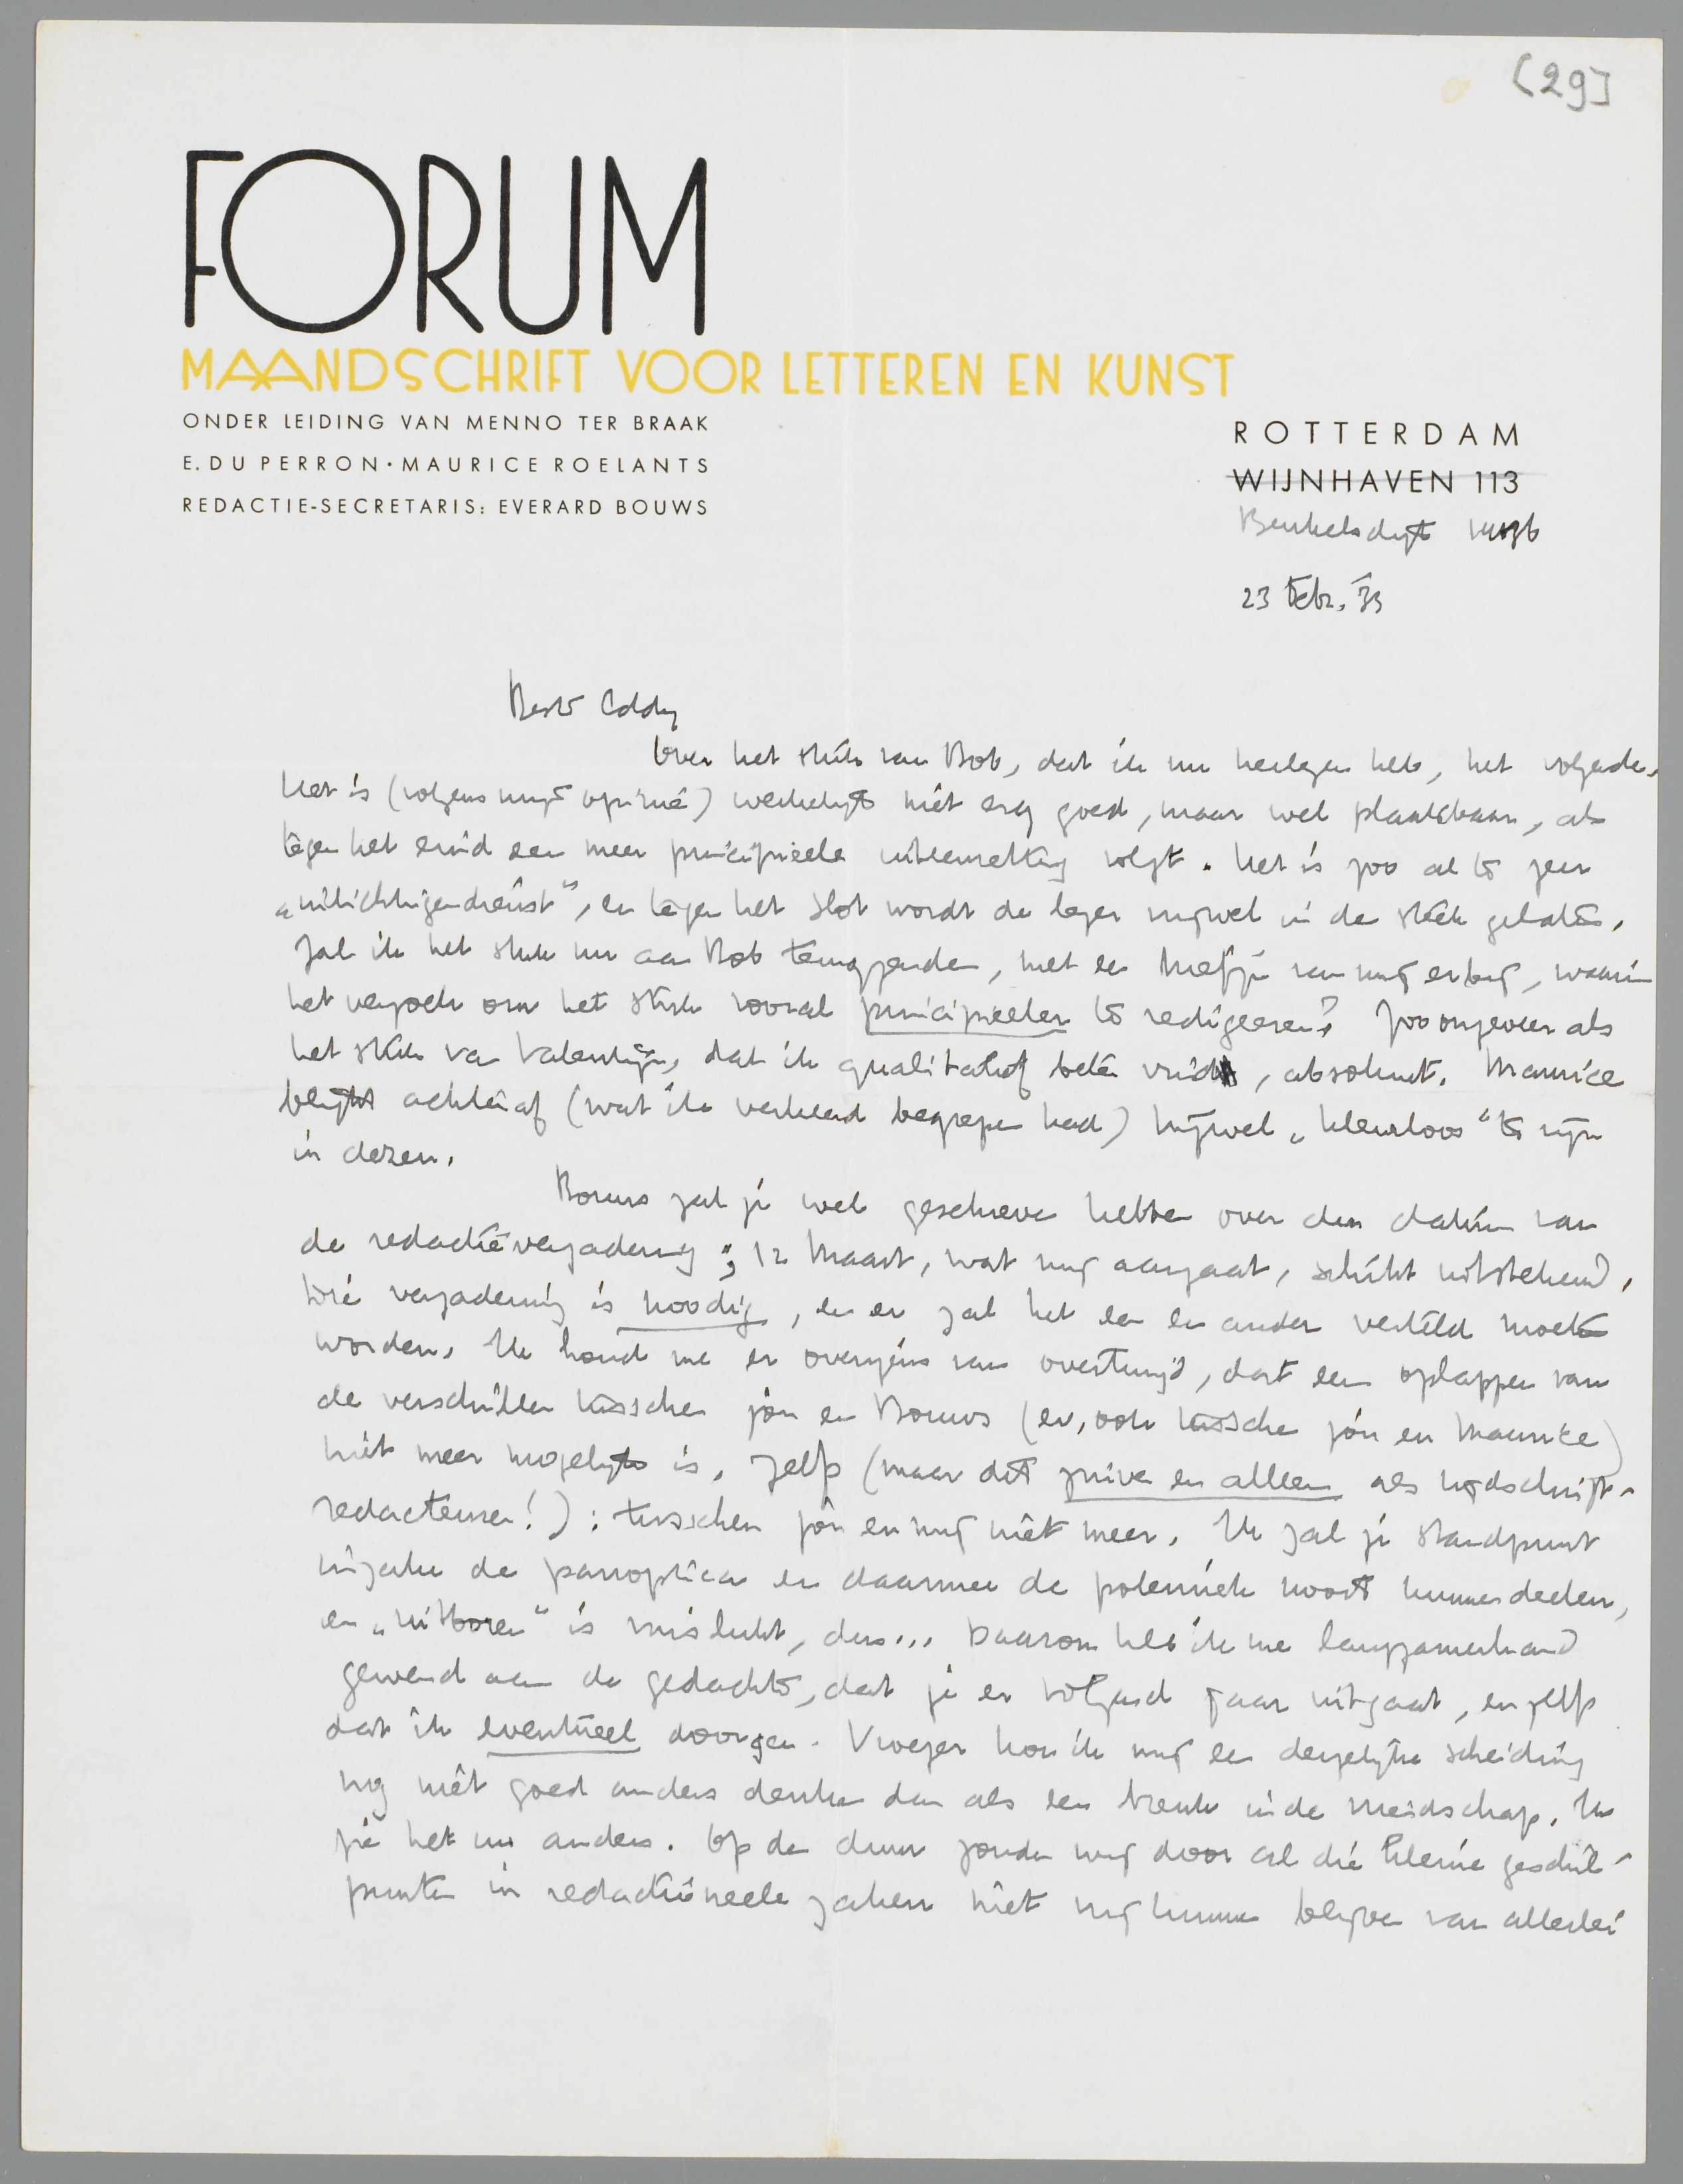 [29]
FORUM
MAANDSCHRIFT VOOR LETTEREN EN KUNST
ONDER LEIDING VAN MENNO TER BRAAK
E. DU PERRON · MAURICE ROELANTS
REDACTIE-SECRETARIS: EVERARD BOUWS
ROTTERDAM
WIJNHAVEN 113
Beukelsdijk
23 Febr. 33
Beste Eddy
Over het stuk van Bob, dat ik nu herlezen heb, het volgende.
Het is (volgens mijn opinie) werkelijk niet erg goed, maar wel plaatsbaar, als
tegen het eind een meer principieele uiteenzetting volgt. Het is zoo al te zeer
„inlichtigendienst”, en tegen het slot wordt de lezer vrijwel in de steek gelaten.
Zal ik het stuk nu aan Bob terugzenden, met een briefje van mij erbij, waarin
het verzoek om het stuk vooral principieeler te redigeeren? Zoo ongeveer als
het stuk van Valentijn, dat ik qualitatief beter vind, absoluut. Maurice
blijkt achteraf (wat ik verkeerd begrepen had) vrijwel „kleurloos” te zijn
in dezen.
Bouws zal je wel geschreven hebben over den datum van
de redactievergadering; 12 Maart, wat mij aangaat, schikt uitstekend,
die vergadering is noodig, en er zal het een en ander verteld moeten
worden. Ik houd me er overigens van overtuigd, dat een oplappen van
de verschillen tusschen jou en Bouws (en, ook tusschen jou en Maurice)
niet meer mogelijk is. Zelfs (maar dit privé en alleen als tijdschrift-
redacteuren!): tusschen jou en mij niet meer. Ik zal je standpunt
inzake de panoptica en daarmee de polemiek nooit kunnen deelen,
en „uitboren” is mislukt, dus... Daarom heb ik me langzamerhand
gewend aan de gedachte, dat je er volgend jaar uitgaat, en zelfs
dat ik eventueel doorga. Vroeger kon ik mij een dergelijke scheiding
nog niet goed anders denken dan als een breuk in de vriendschap. Ik
zie het nu anders. Op den duur zouden wij door al die kleine geschil-
punten in redactioneele zaken niet vrij kunnen blijven van allerlei